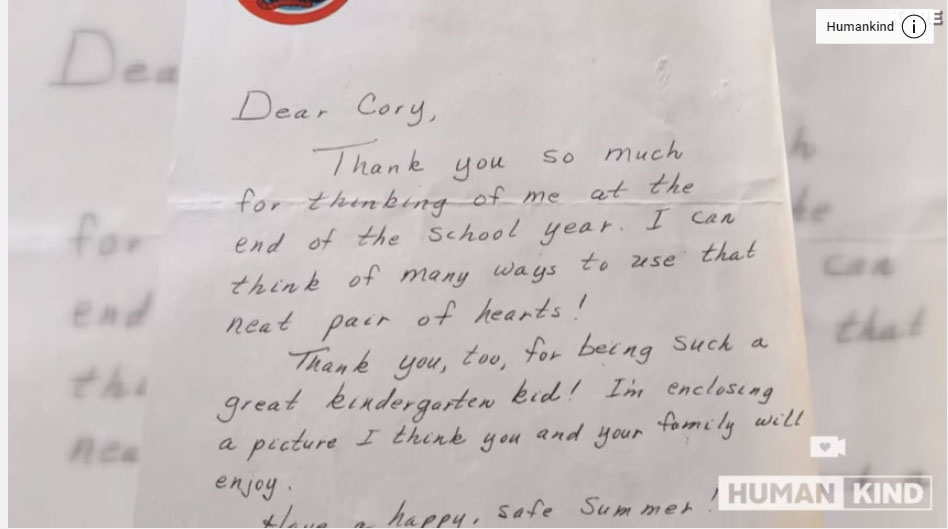 Humankind
Dear Cory,
Thank you so much
for thinking of me at the
end of the school year. I can
think of many ways to use that
neat pair of hearts!
Thank you, too, for being such a
great kindergarten kid! I'm enclosing
a picture I think you and your family will
enjoy.
Have a happy, safe Summer!
HUMAN KIND
Dea
for
end
thi
nea
h
he
can
that